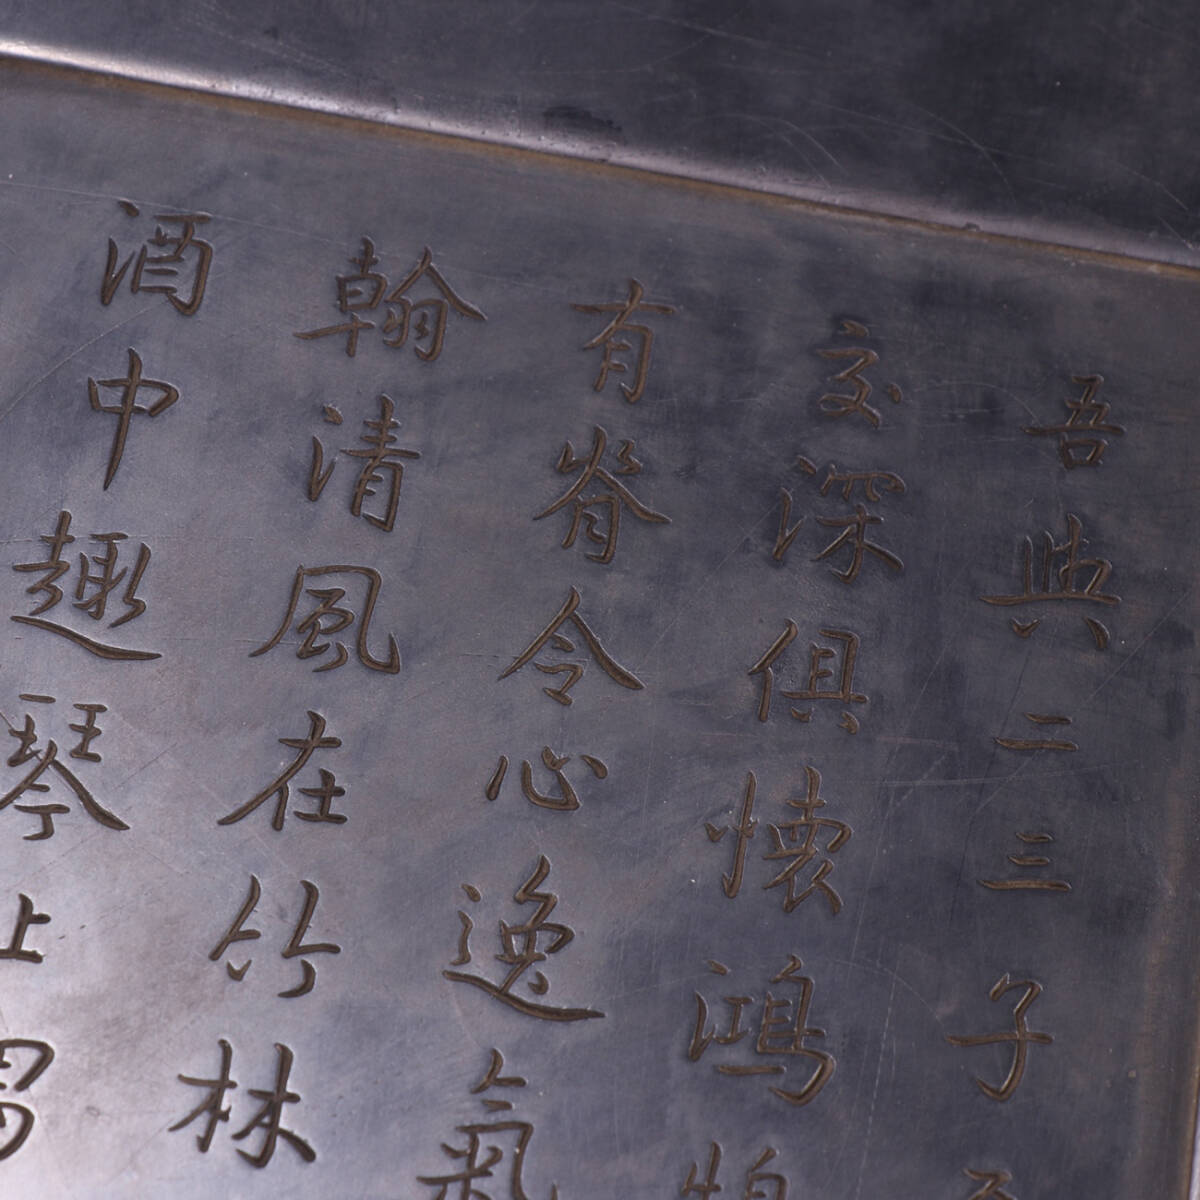 吾與二三子
交深俱懷鴻
有脊令心逸氣
翰清風在竹林
酒中趣琴上